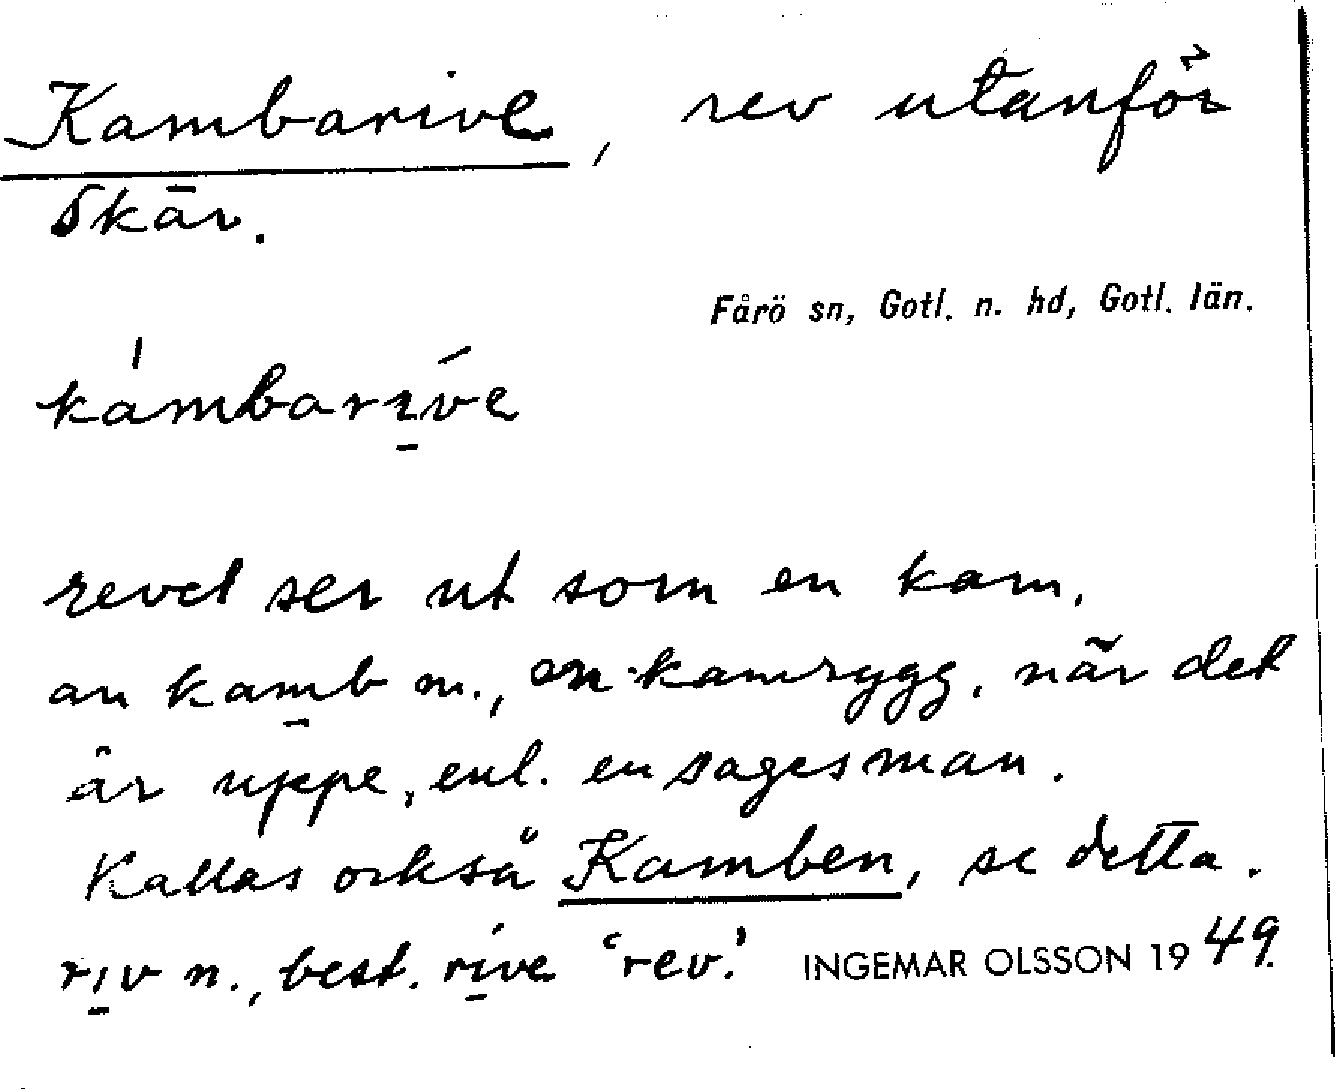 Kambarive, rev utanför
Skär.
Fårö sn, Gotl. n. hd, Gotl. län.
kámbarı̱ve
revet ser ut som en kam,
an kam̱b m., en kamrygg, när det
är uppe, enl. en sagesman.
Kallas också Kamben, se detta.
rı̱v n., best. rı̱ve ‘rev.’ INGEMAR OLSSON 1949.